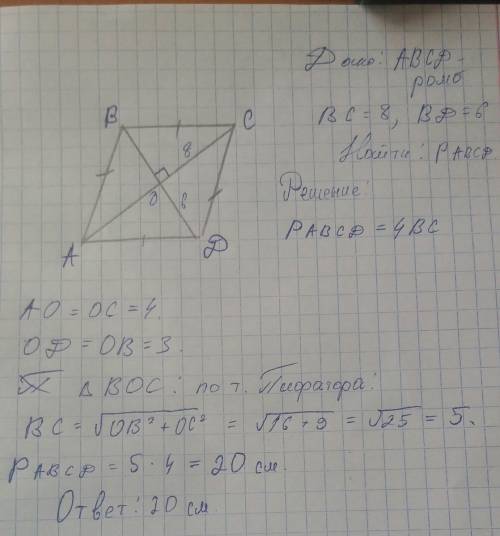 Дано: ABCD -
ромб
BC = 8, BD = 6
Найти: PABCD
Решение:
PABCD = 4BC
B
C
8
O
6
A
D
AO = OC = 4.
OD = OB = 3.
△ BOC: по т. Пифагора:
BC = √OB² + OC² = √16 + 9 = √25 = 5.
PABCD = 5 · 4 = 20 см.
Ответ: 20 см